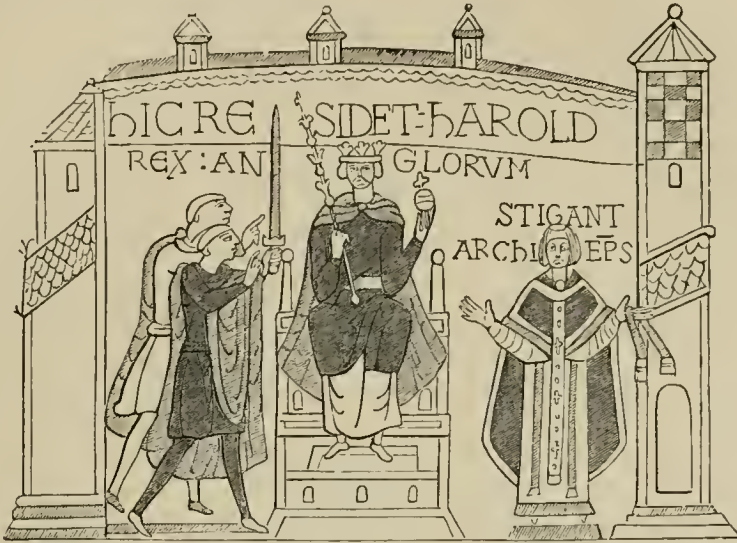 hIC RE SIDET:hAROLD
REX:AN GLORVM
STIGANT
ARChI EP̅S